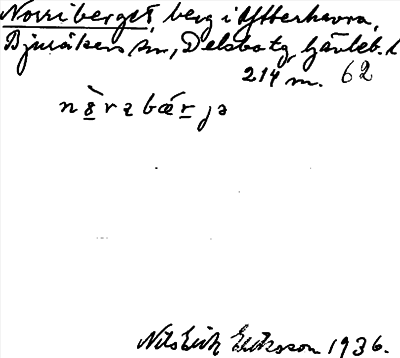 Norriberget, berg i Ytterhavra,
Bjuråkers sn, Delsbo tg, Gävleb. l.
214 m. 62
nò̱rabǽṟjə
Nils Erik Eriksson 1936.